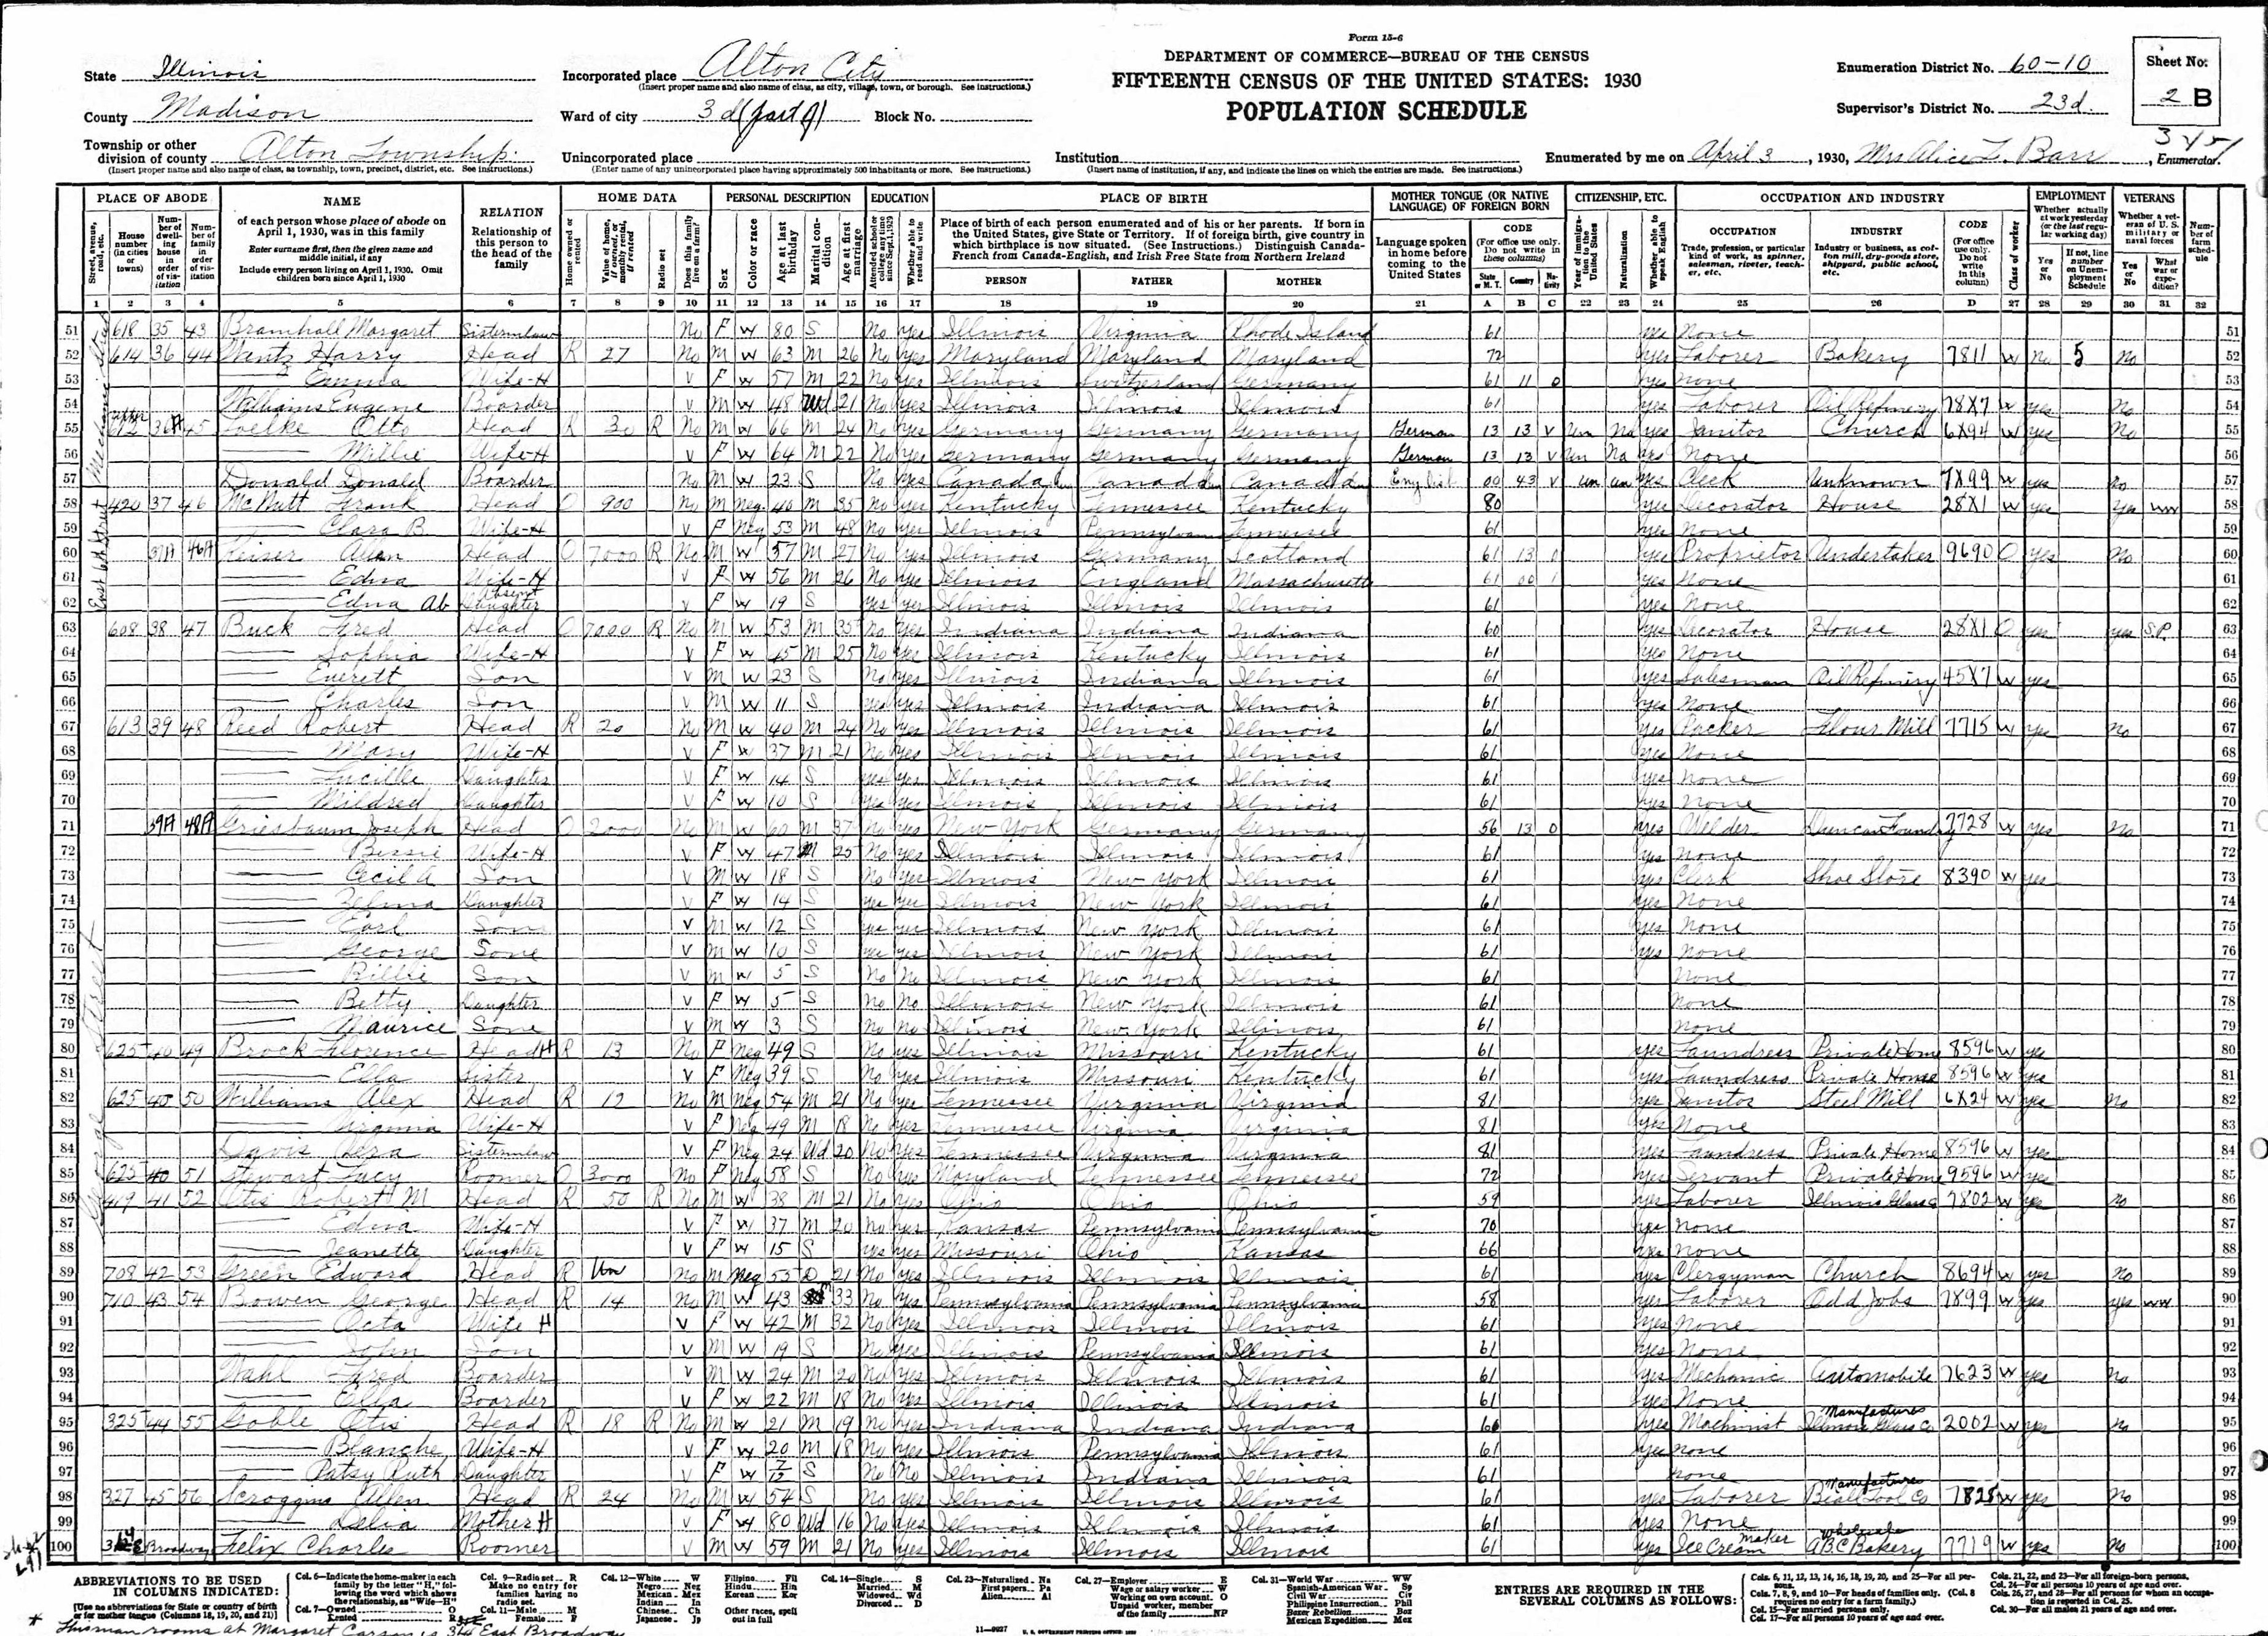 Form 15-6
DEPARTMENT OF COMMERCE—BUREAU OF THE CENSUS
FIFTEENTH CENSUS OF THE UNITED STATES: 1930
POPULATION SCHEDULE
State Illinois
County Madison
Township or other division of county Alton Township
(Insert proper name and also name of class, as township, town, precinct, district, etc. See instructions.)
Incorporated place Alton City
(Insert proper name and also name of class, as city, village, town, or borough. See instructions.)
Ward of city 3d (part of) Block No.
Unincorporated place
(Enter name of any unincorporated place having approximately 500 inhabitants or more. See instructions.)
Institution
(Insert name of institution, if any, and indicate the lines on which the entries are made. See instructions.)
Enumeration District No. 60-10
Supervisor's District No. 23d.
Sheet No. 2 B
3451
Enumerated by me on April 3, 1930, Mrs Alice L. Barr, Enumerator.
PLACE OF ABODE NAME RELATION HOME DATA PERSONAL DESCRIPTION EDUCATION PLACE OF BIRTH MOTHER TONGUE (OR NATIVE LANGUAGE) OF FOREIGN BORN CITIZENSHIP, ETC. OCCUPATION AND INDUSTRY EMPLOYMENT VETERANS
PERSON FATHER MOTHER
1 2 3 4 5 6 7 8 9 10 11 12 13 14 15 16 17 18 19 20 21 A B C 22 23 24 25 26 D 27 28 29 30 31 32
51 618 35 43 Bramhall Margaret Sisterinlaw No F W 80 S No Yes Illinois Virginia Rhode Island 61 yes None 51
52 614 36 44 Wentz Harry Head R 27 No M W 63 M 26 No Yes Maryland Maryland Maryland 72 yes Laborer Bakery 7811 W No 5 No 52
53 Emma Wife-H V F W 57 M 22 No Yes Illinois Switzerland Germany 61 11 0 yes None 53
54 Williams Eugene Boarder V M W 48 Wd 21 No Yes Illinois Illinois Illinois 61 yes Laborer Oil Refinery 78X7 W yes No 54
55 612 36A 45 Loelke Otto Head R 30 R No M W 66 M 24 No Yes Germany Germany Germany German 13 13 V Un Na yes Janitor Church 6X94 W yes No 55
56 Millie Wife-H V F W 64 M 22 No Yes Germany Germany Germany German 13 13 V Un Na yes None 56
57 Donald Donald Boarder No M W 23 S No Yes Canada Canada Canada English 00 43 V un un yes Clerk Unknown 7X99 W yes No 57
58 420 37 46 McNutt Frank Head O 900 No M Neg 40 M 35 No yes Kentucky Tennessee Kentucky 80 yes Decorator House 28X1 W yes Yes WW 58
59 Clara B Wife-H V F Neg 53 M 48 No Yes Illinois Pennsylvania Tennessee 61 yes None 59
60 37A 46A Keiser Allan Head O 7000 R No M W 57 M 27 No Yes Illinois Germany Scotland 61 13 0 yes Proprietor Undertaker 9690 O yes No 60
61 Edna Wife-H V F W 56 M 26 No yes Illinois England Massachusetts 61 00 1 yes None 61
62 Edna Ab Daughter Absent V F W 19 S yes yes Illinois Illinois Illinois 61 yes None 62
63 608 38 47 Buck Fred Head O 7000 R No M W 53 M 35 No Yes Indiana Indiana Indiana 60 yes Decorator House 28X1 O yes yes SP. 63
64 Sophia Wife-H V F W 45 M 25 No Yes Illinois Kentucky Illinois 61 yes None 64
65 Everett Son V M W 23 S No Yes Illinois Indiana Illinois 61 yes Salesman Oil Refinery 45X7 W yes 65
66 Charles Son V M W 11 S yes yes Illinois Indiana Illinois 61 yes None 66
67 613 39 48 Reed Robert Head R 20 No M W 40 M 24 No Yes Illinois Illinois Illinois 61 yes Packer Flour Mill 7715 W yes No 67
68 Mary Wife-H V F W 37 M 21 No Yes Illinois Illinois Illinois 61 yes None 68
69 Lucille Daughter V F W 14 S yes yes Illinois Illinois Illinois 61 yes None 69
70 Mildred Daughter V F W 10 S yes yes Illinois Illinois Illinois 61 yes None 70
71 39A 48A Griesbaum Joseph Head O 2000 No M W 60 M 37 No yes New York Germany Germany 56 13 0 yes Welder Duncan Foundry 7728 W yes No 71
72 Bessie Wife-H V F W 47 M 25 No Yes Illinois Illinois Illinois 61 yes None 72
73 Cecil A Son V M W 18 S No Yes Illinois New York Illinois 61 yes Clerk Shoe Store 8390 W yes 73
74 Zelma Daughter V F W 14 S yes yes Illinois New York Illinois 61 yes None 74
75 Earl Son V M W 12 S yes yes Illinois New York Illinois 61 yes None 75
76 George Sone V M W 10 S yes yes Illinois New York Illinois 61 yes None 76
77 Billie Son V M W 5 S No No Illinois New York Illinois 61 None 77
78 Betty Daughter V F W 5 S No No Illinois New York Illinois 61 None 78
79 Maurice Sone V M W 3 S No No Illinois New York Illinois 61 None 79
80 625 40 49 Brock Florence Head H R 13 No F Neg 49 S No yes Illinois Missouri Kentucky 61 yes Laundress Private Home 8596 W yes 80
81 Ella Sister V F Neg 39 S No Yes Illinois Missouri Kentucky 61 yes Laundress Private Home 8596 W yes 81
82 625 40 50 Williams Alex Head R 12 No M Neg 54 M 21 No Yes Tennessee Virginia Virginia 81 yes Janitor Steel Mill 6X24 W yes No 82
83 Virginia Wife-H V F Neg 49 M 18 No Yes Tennessee Virginia Virginia 81 yes None 83
84 Davis Sisterinlaw V F Neg 24 Wd 20 No Yes Tennessee Virginia Virginia 81 yes Laundress Private Home 8596 W yes 84
85 625 40 51 Stewart Lucy Roomer O 3000 No F Neg 58 S No Yes Maryland Tennessee Tennessee 72 yes Servant Private Home 9596 W yes 85
86 419 41 52 Otis Robert M Head R 50 R No M W 38 M 21 No Yes Ohio Ohio Ohio 59 yes Laborer Illinois Glass 7802 W yes No 86
87 Edna Wife-H V F W 37 M 20 No Yes Kansas Pennsylvania Pennsylvania 70 yes None 87
88 Jeanette Daughter V F W 15 S yes yes Missouri Ohio Kansas 66 yes None 88
89 708 42 53 Green Edward Head R Un No M Neg 55 D 21 No Yes Illinois Illinois Illinois 61 yes Clergyman Church 8694 W yes No 89
90 710 43 54 Bowen George Head R 14 No M W 43 33 No Yes Pennsylvania Pennsylvania Pennsylvania 58 yes Laborer Odd Jobs 7899 W yes yes WW 90
91 Octa Wife H V F W 42 M 32 No Yes Illinois Illinois Illinois 61 yes None 91
92 John Son V M W 19 S No Yes Illinois Pennsylvania Illinois 61 yes None 92
93 Wahl Fred Boarder V M W 24 M 20 No Yes Illinois Illinois Illinois 61 yes Mechanic Automobile 7623 W yes No 93
94 Ella Boarder V F W 22 M 18 No Yes Illinois Illinois Illinois 61 yes None 94
95 325 44 55 Goble Otis Head R 18 R No M W 21 M 19 No Yes Indiana Indiana Indiana 60 yes Machinist Manufactures Illinois Glass Co 2002 W yes No 95
96 Blanche Wife-H V F W 20 M 18 No Yes Illinois Pennsylvania Illinois 61 yes None 96
97 Patsy Ruth Daughter V F W 7/12 S No No Illinois Indiana Illinois 61 None 97
98 327 45 56 Scroggins Allen Head R 24 No M W 54 S No yes Illinois Illinois Illinois 61 yes Laborer Manufactures Beall Tool Co 7825 W yes No 98
99 Delia Mother H V F W 80 Wd 16 No Yes Illinois Illinois Illinois 61 yes None 99
100 Broadway Felix Charles Roomer V M W 59 M 21 No Yes Illinois Illinois Illinois 61 yes Ice Cream maker wholesale ABC Bakery 7719 W yes No 100
ABBREVIATIONS TO BE USED IN COLUMNS INDICATED:
[Use no abbreviations for State or country of birth or for mother tongue (Columns 18, 19, 20, and 21)]
ENTRIES ARE REQUIRED IN THE SEVERAL COLUMNS AS FOLLOWS:
11—9027 U. S. GOVERNMENT PRINTING OFFICE: 1930
* This man rooms at Margaret Carson's 314 East Broadway